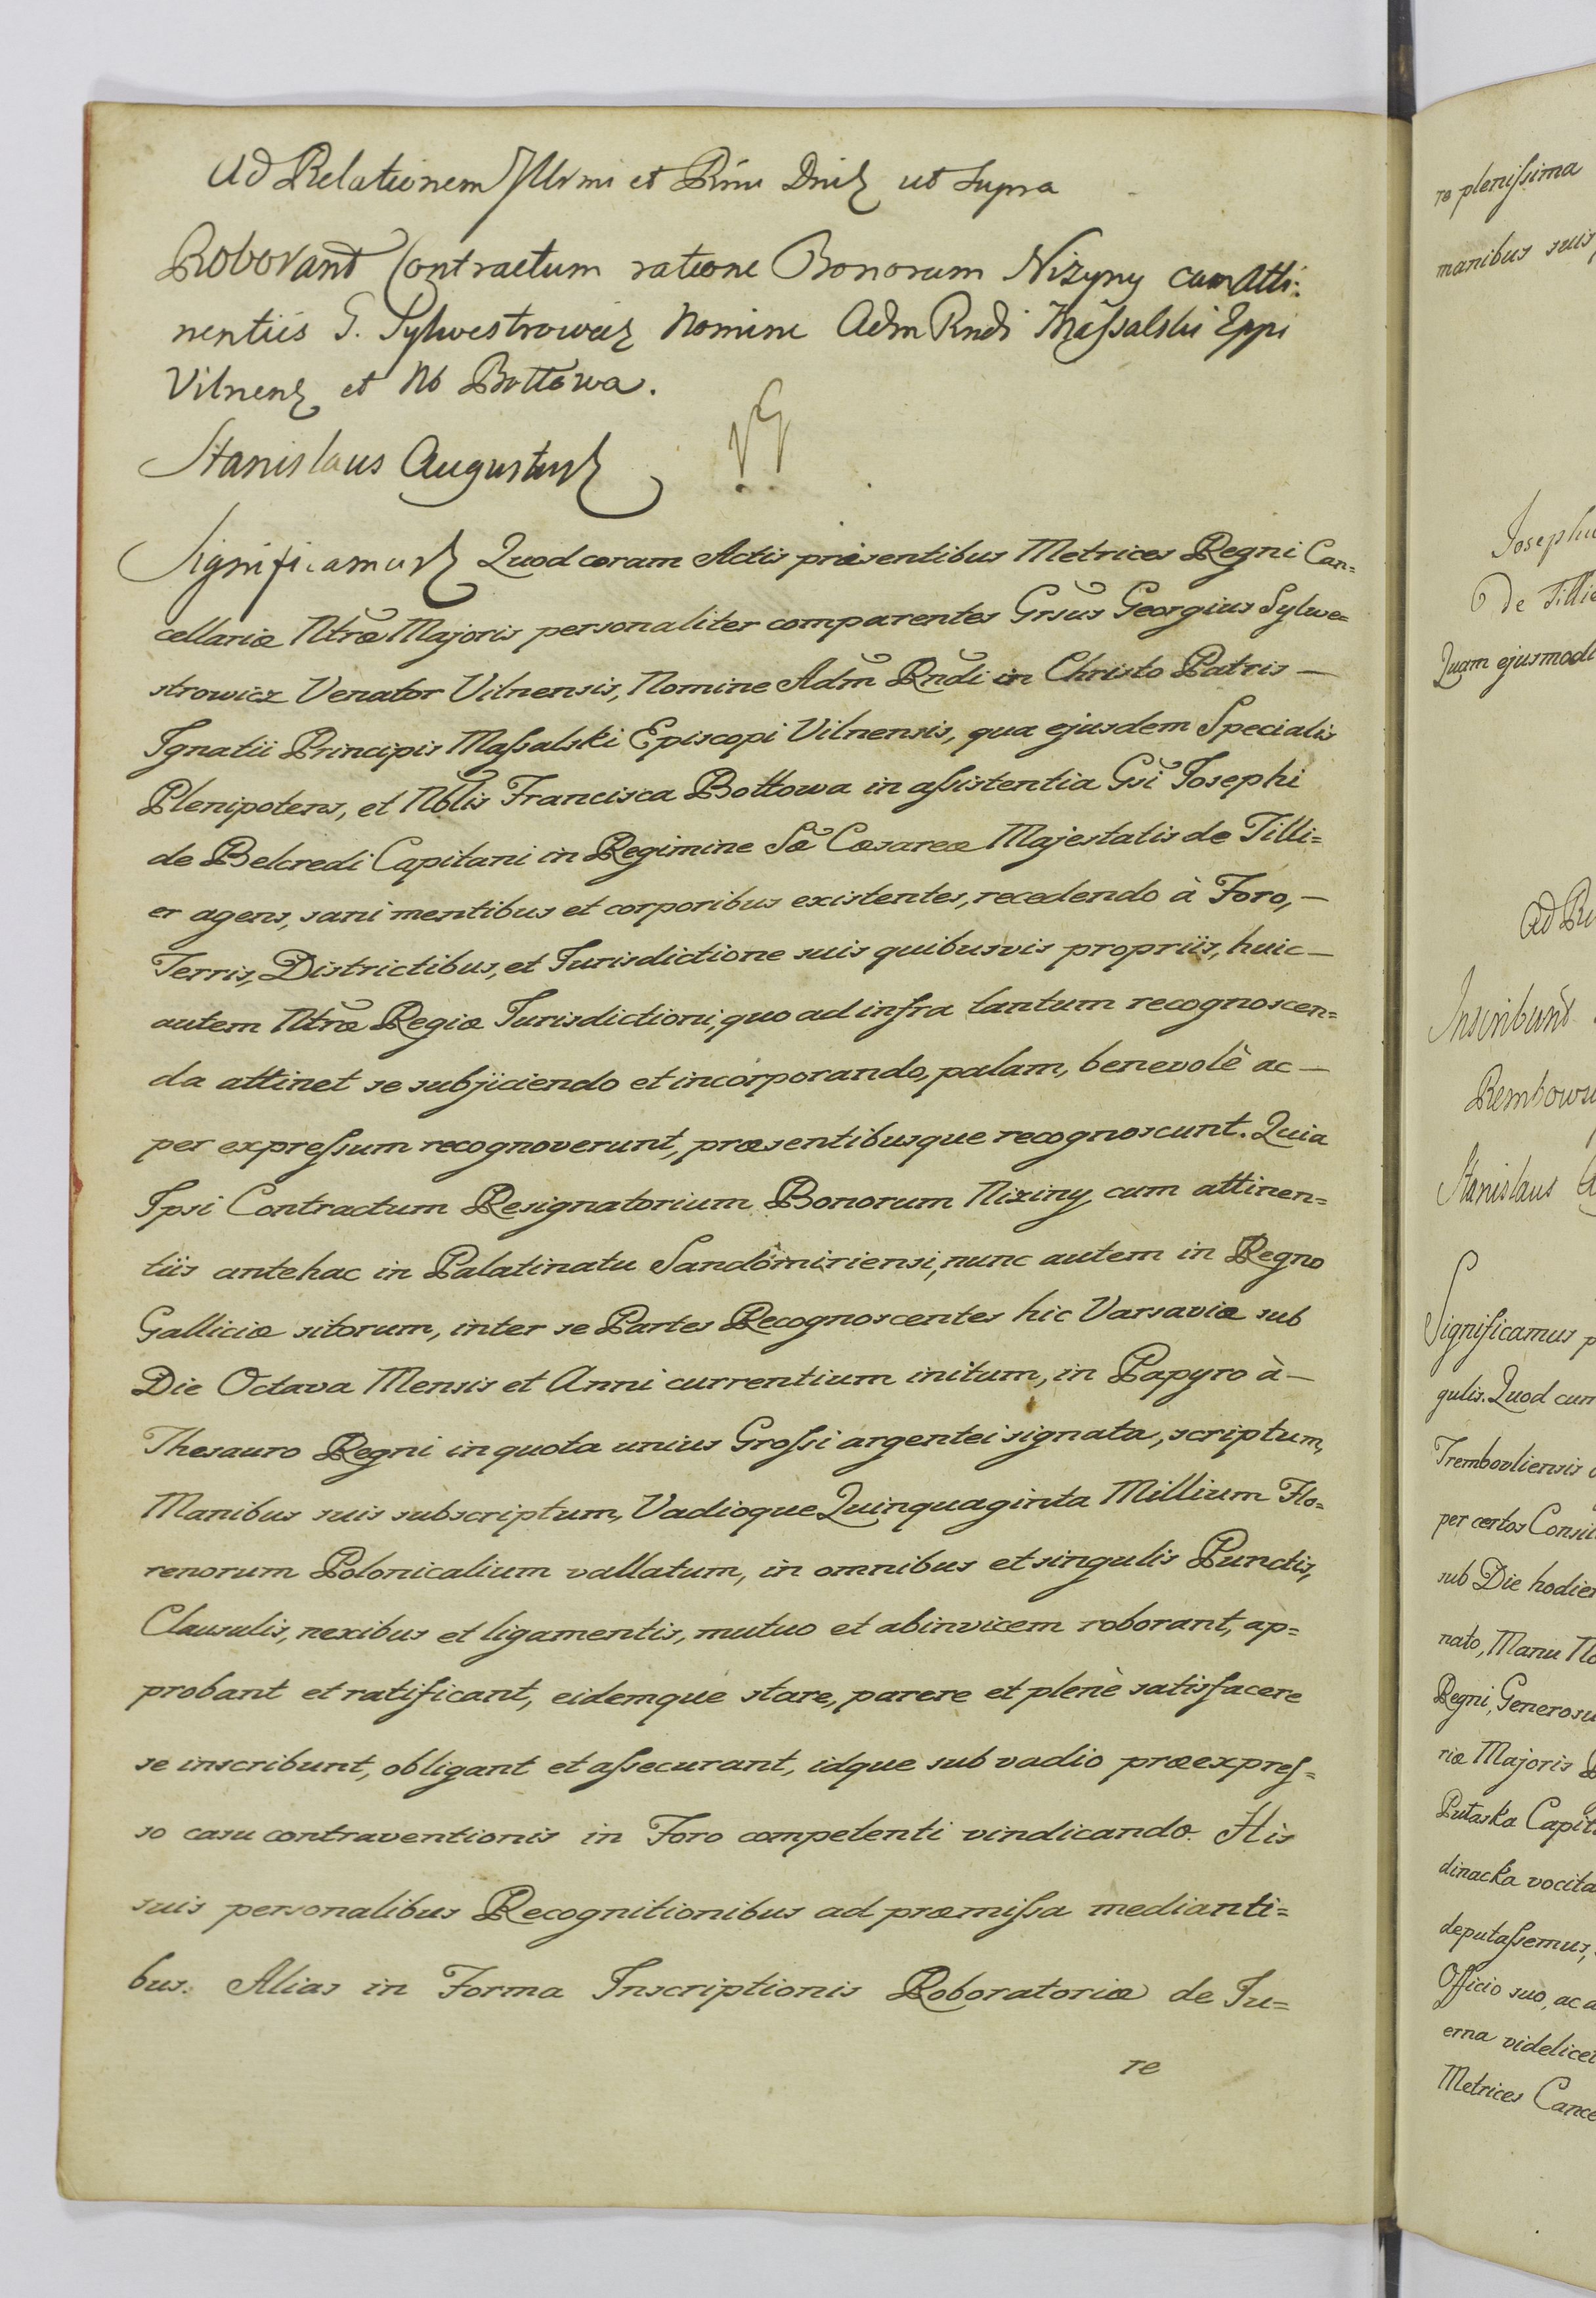 Ad Relationem Illrmi et Rmi Dni ut supra
Roborant Contractum ratione Bonorum Nizyny cum Atti:
nentiis G. Sylwestrowicz Nomine Adm Rndi Massalski Eppi
Vilnens et Nb Bottowa.
Stanislaus Augustus
Significamus Quod coram Actis præsentibus Metrices Regni Can=
cellariæ Ntræ Majoris personaliter comparentes Grsus Georgius Sylwe=
strowicz Venator Vilnensis, Nomine Adm Rndi in Christo Patris —
Ignatii Principis Maſsalski Episcopi Vilnensis, qua ejusdem Specialis
Plenipotens, et Nblis Francisca Bottowa in aſsistentia Gsi Josephi
de Belcredi Capitani in Regimine Sæ Cæsareæ Majestatis de Tilli=
er agens, sani mentibus et corporibus existentes, recedendo à Foro, —
Terris, Districtibus, et Jurisdictione suis quibusvis propriis, huic —
autem Ntræ Regiæ Jurisdictioni, quo ad infra tantum recognoscen=
da attinet se subjiciendo et incorporando, palam, benevolè ac —
per expreſsum recognoverunt, præsentibusque recognoscunt. Quia
Ipsi Contractum Resignatorium Bonorum Niziny cum attinen=
tiis antehac in Palatinatu Sandomiriensi, nunc autem in Regno
Galliciæ sitorum, inter se Partes Recognoscentes hic Varsaviæ sub
Die Octava Mensis et Anni currentium initum, in Papyro à —
Thesauro Regni in quota unius Groſsi argentei signata, scriptum,
Manibus suis subscriptum, Vadioque Quinquaginta Millium Flo=
renorum Polonicalium vallatum, in omnibus et singulis Punctis,
Clausulis, nexibus et ligamentis, mutuo et abinvicem roborant, ap=
probant et ratificant, eidemque stare, parere et plenè satisfacere
se inscribunt, obligant et aſsecurant, idque sub vadio præexpreſ=
so casu contraventionis in Foro competenti vindicando. His
suis personalibus Recognitionibus ad præmiſsa medianti=
bus. Alias in Forma Inscriptionis Roboratoriæ de Ju=
re
re pleniſsima
manibus suis
Josephu
de Tillie
Quam ejusmodi
Ad Re
Inscribunt
Rembows
Stanislaus A
Significamus p
gulis. Quod cum
Trembovliensis
per certos Consil
sub Die hodier
nato, Manu No
Regni, Generosu
riæ Majoris R
Putaska Capit
dinacka vocita
deputaſsemus,
Officio suo, ac a
erna videlicet
Metrices Cance